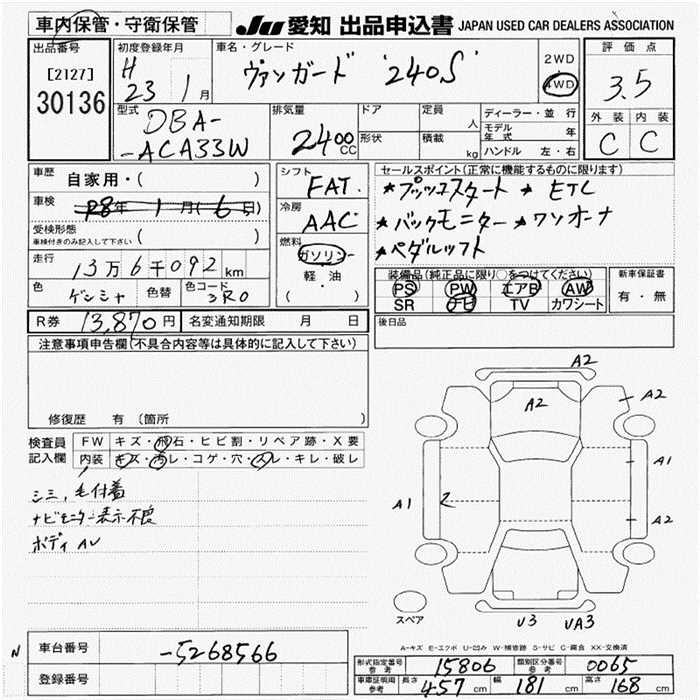 車内保管・守衛保管
JU 愛知 出品申込書 JAPAN USED CAR DEALERS ASSOCIATION
出品番号
[2127]
30136
初度登録年月
H
23 1月
車名・グレード
ヴァンガード 240S
2WD
4WD
評価点
3.5
外装 内装
C C
型式
DBA-
-ACA33W
排気量
2400
CC
ドア
形状
定員
人
積載
kg
ディーラー・並行
モデル年式 年
ハンドル 左・右
車歴
自家用・( )
車検
R8年 1月(6日)
受検形態
車検付きのみ記入して下さい ( )
走行
13万6千092 km
色
ゲンシャ
色替
色コード
3R0
シフト
FAT
冷房
AAC
燃料
ガソリン
軽・油
( )
セールスポイント(正常に機能するものに限ります)
★プッシュスタート ★ ETC
★バックモニター ★ワンオーナ
★ペダルシフト
装備品(純正品に限り○をつけてください)
PS PW エアB AW
SR ナビ TV カワシート
新車保証書
有・無
R券 13,870円 名変通知期限 月 日
後日品
注意事項申告欄(不具合内容等は具体的に記入して下さい)
修復歴 有 (箇所 )
検査員
記入欄
FW キズ・飛石・ヒビ割・リペア跡・X要
内装 キズ・汚レ・コゲ・穴・スレ・キレ・破レ
シミ、毛付着
ナビモニター表示不良
ボディ AU
A2
A2
A2
A1
A1
A2
U3 UA3
スペア
A-キズ E-エクボ U-凹み W-補修跡 S-サビ C-腐食 XX-交換済
N
車台番号 -5268566
登録番号
形式指定番号
参考
15806
類別区分番号
参考
0065
車庫証明用
参考
長さ 457 cm 幅 181 cm 高さ 168 cm